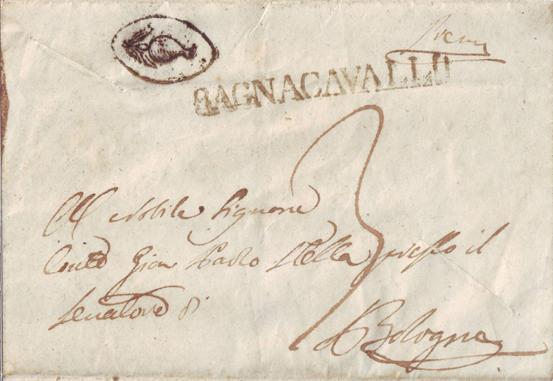 BAGNACAVALLO
3
Al Nobile Signore
Conte Gian Paolo Stella presso il
Senatore di
Bologna